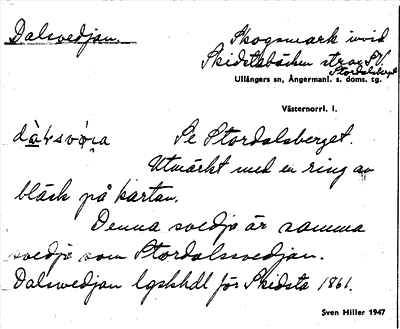 Dalsvedjan.
Skogsmark invid
Skidstabäcken strax SV.
Stordalsberget
Ullångers sn, Ångermanl. s. doms. tg.
Västernorrl. l.
Se Stordalsberget.
Utmärkt med en ring av
bläck på kartan.
Denna svedja är samma
svedja som Stordalssvedjan.
Dalsvedjan lgskhdl för Skidsta 1861.
Sven Hiller 1947